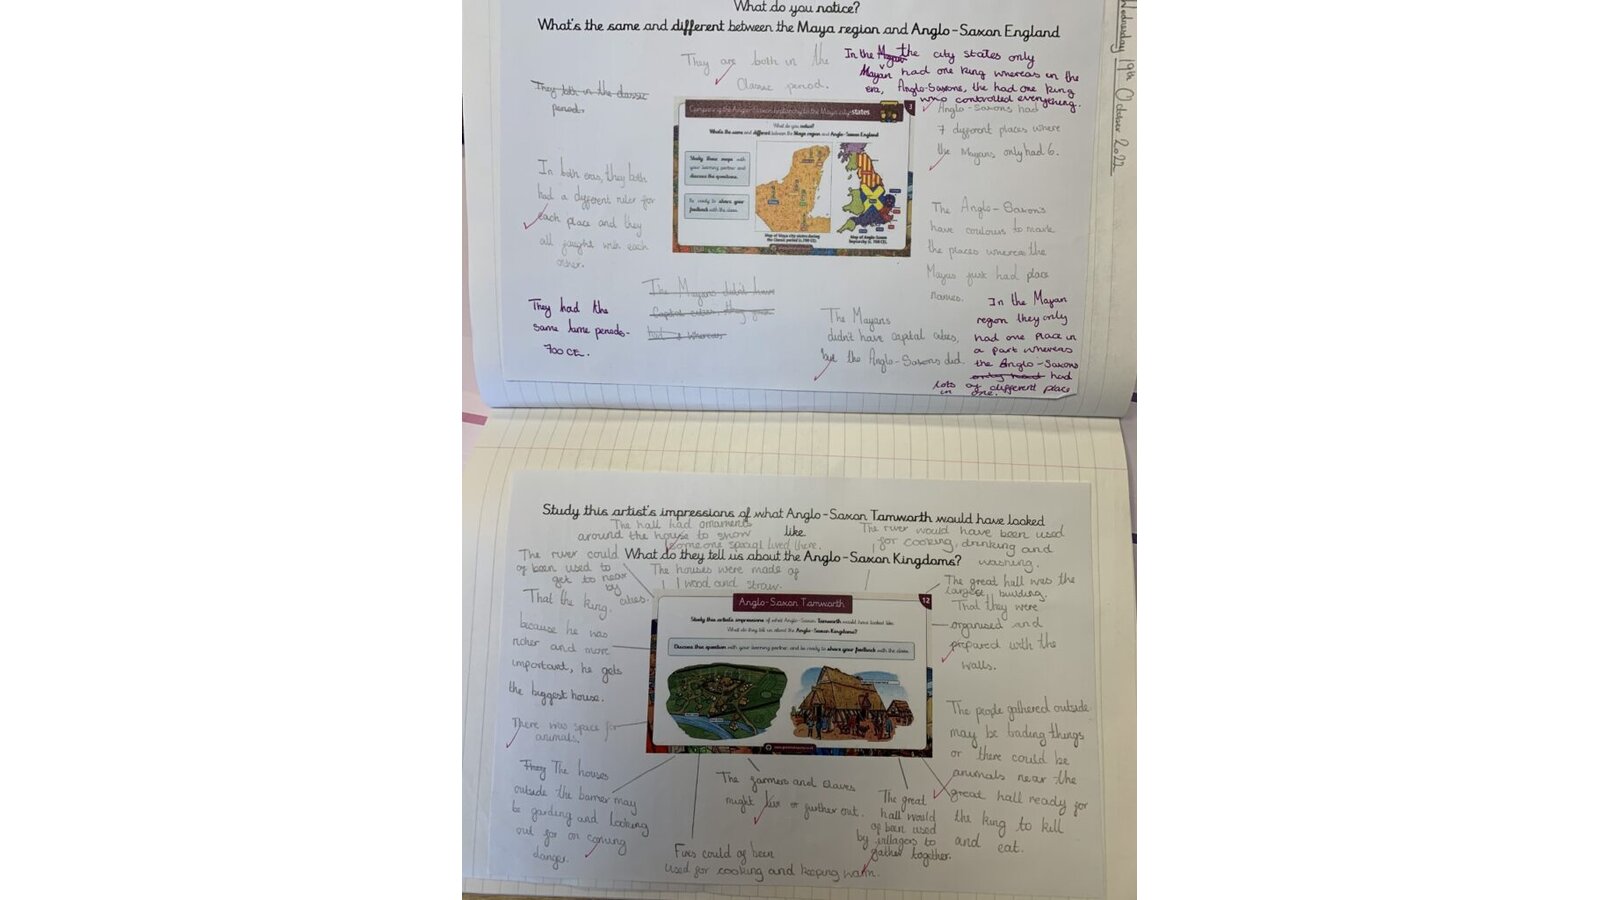 What do you notice?
What's the same and different between the Maya region and Anglo-Saxon England
Wednesday 19th October 2022
They are both in the
Classic period.
In the Mayan the city states only
Mayan had one king whereas in the
era, Anglo-Saxons, the had one king
who controlled everything.
They both in the classic
period.
Anglo-Saxons had
7 different places where
the Mayans only had 6.
In both eras, they both
had a different ruler for
each place and they
all faught with each
other.
Comparing the Anglo-Saxon to the Maya city-states
3
What do you notice?
What's the same and different between the Maya region and Anglo-Saxon England
Study these maps with
your learning partner and
discuss the questions.
Be ready to share your
feedback with the class.
Map of Maya city states during
the Classic period (c. 700 CE).
Map of Anglo-Saxon
heptarchy (c. 700 CE).
The Anglo-Saxon's
have coulours to mark
the places whereas the
Mayas just had place
names.
They had the
same time periods-
700 CE.
The Mayans didn't have
Capital cities, they just
had whereas
The Mayans
didn't have capital cities,
but the Anglo-Saxons did.
In the Mayan
region they only
had one place in
a part whereas
the Anglo-Saxons
only had had
lots of different place
in one.
Study this artist's impressions of what Anglo-Saxon Tamworth would have looked
like.
What do they tell us about the Anglo-Saxon Kingdoms?
The hall had ornaments
around the house to show
someone special lived there.
The river would have been used
for cooking, drinking and
washing.
The river could
of been used to
get to near
by cities.
The houses were made of
wood and straw.
The great hall was the
largest building.
That the king,
because he was
richer and more
important, he gets
the biggest house.
That they were
organised and
prepared with the
walls.
Anglo-Saxon Tamworth
12
Study this artist's impressions of what Anglo-Saxon Tamworth would have looked like.
What do they tell us about the Anglo-Saxon Kingdoms?
Discuss this question with your learning partner and be ready to share your feedback with the class.
There was space for
animals.
They The houses
outside the barrier may
be garding and looking
out for on coming
danger.
Fires could of been
used for cooking and keeping warm.
The farmers and slaves
might live further out.
The great
hall would
of been used
by villagers to
gather together.
The people gathered outside
may be trading things
or there could be
animals near the
great hall ready for
the king to kill
and eat.